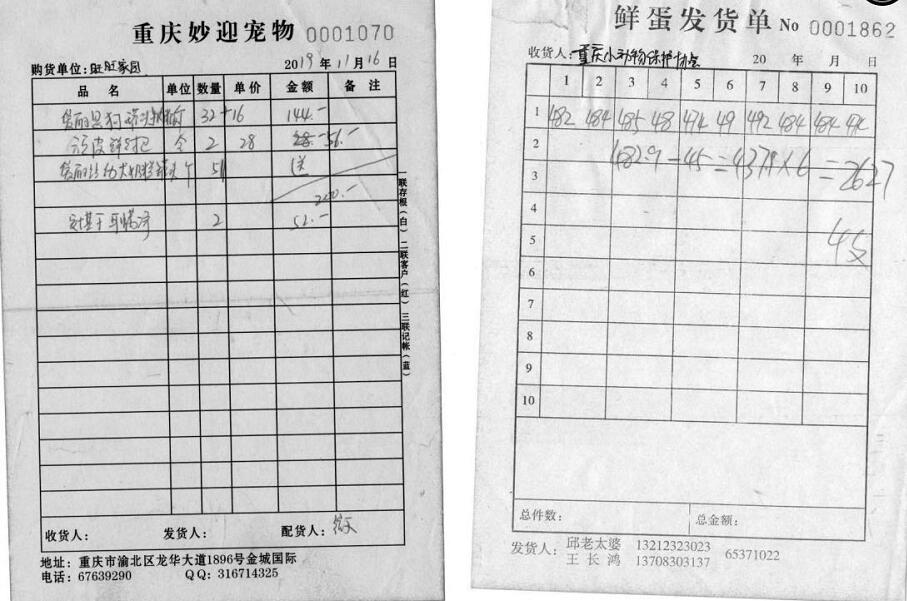 重庆妙迎宠物 0001070
购货单位:旺旺家园 2019年11月16日
品名 单位 数量 单价 金额 备注
32 16 144.-
个 2 28 56.-
个 51 送
200.-
耳螨净 2 52.-
一联存根(白)二联客户(红)三联记帐(蓝)
收货人: 发货人: 配货人:
地址:重庆市渝北区龙华大道1896号金城国际
电话:67639290 QQ:316714325
鲜蛋发货单 No 0001862
收货人:重庆小动物保护协会 20 年 月 日
1 2 3 4 5 6 7 8 9 10
1 482 484 485 48 474 49 492 484 484 474
2 482.9-45=437.9×6=2627
3
4
5 45
6
7
8
9
10
总件数: 总金额:
发货人: 邱老太婆 13212323023 65371022
王长鸿 13708303137